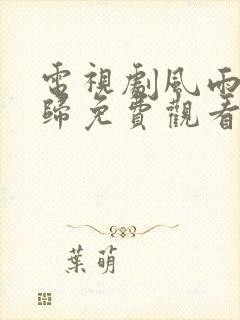 電視劇風雨
歸免費觀看
葉萌